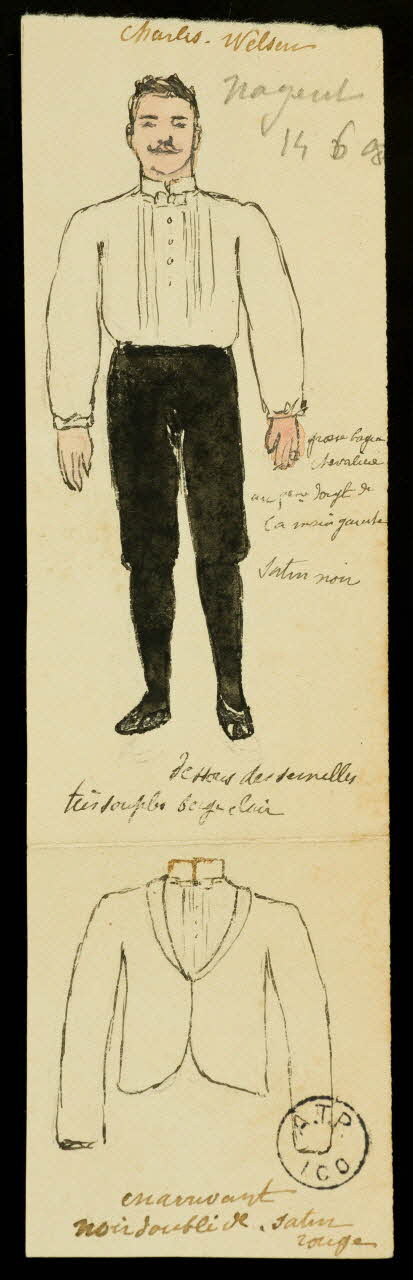 Charles. Welson
Nogent
14 6 08
grosse bague
chevalière
au doigt de
la main gauche
Satin noir
dessous des semelles
très souples beige clair
A.T.P.
ICO
en arrivant
noir doublé de satin
rouge